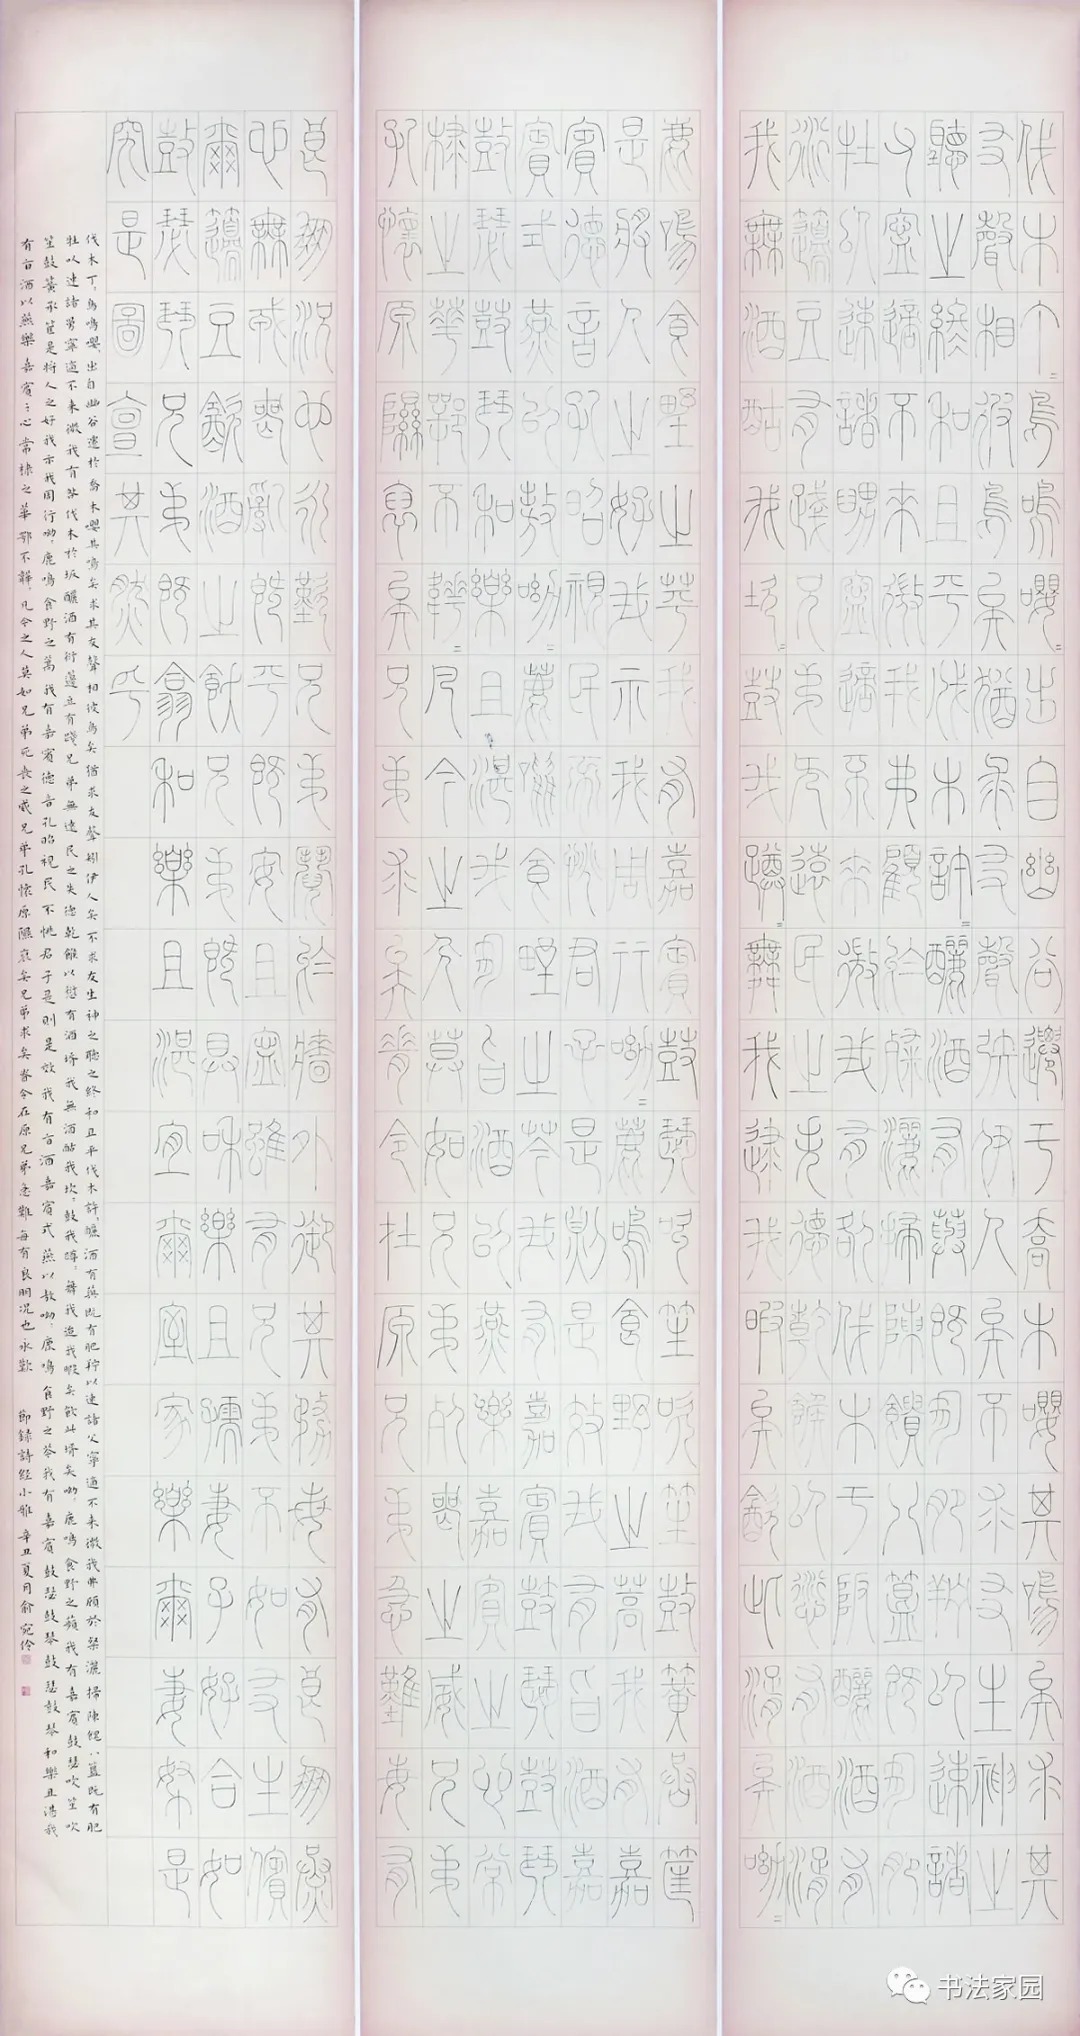 伐木丁〻鳥鳴嚶〻出自幽谷遷于喬木嚶其鳴矣求其
友聲相彼鳥矣猶求友聲矧伊人矣不求友生神之
聽之終和且平伐木許〻釃酒有藇既有肥羜以速諸
父寧適不來微我弗顧於粲灑掃陳饋八簋既有肥
牡以速諸舅寧適不來微我有咎伐木于阪釃酒有
衍籩豆有踐兄弟無遠民之失德乾餱以愆有酒湑
我無酒酤我坎〻鼓我蹲〻舞我迨我暇矣飲此湑矣呦〻
鹿鳴食野之苹我有嘉賓鼓瑟吹笙吹笙鼓簧承筐
是將人之好我示我周行呦〻鹿鳴食野之蒿我有嘉
賓德音孔昭視民不恌君子是則是效我有旨酒嘉
賓式燕以敖呦〻鹿鳴食野之芩我有嘉賓鼓瑟鼓琴
鼓瑟鼓琴和樂且湛我有旨酒以燕樂嘉賓之心常
棣之華鄂不韡〻凡今之人莫如兄弟死喪之威兄弟
孔懷原隰裒矣兄弟求矣脊令在原兄弟急難每有
良朋況也永歎兄弟鬩於牆外禦其務每有良朋烝
也無戎喪亂既平既安且寧雖有兄弟不如友生儐
爾籩豆飲酒之飫兄弟既具和樂且孺妻子好合如
鼓瑟琴兄弟既翕和樂且湛宜爾室家樂爾妻帑是
究是圖亶其然乎
伐木丁〻鳥鳴嚶〻出自幽谷遷於喬木嚶其鳴矣求其友聲相彼鳥矣猶求友聲矧伊人矣不求友生神之聽之終和且平伐木許〻釃酒有藇既有肥羜以速諸父寧適不來微我弗顧於粲灑掃陳饋八簋既有肥
牡以速諸舅寧適不來微我有咎伐木於坂釃酒有衍籩豆有踐兄弟無遠民之失德乾餱以愆有酒湑我無酒酤我坎〻鼓我蹲〻舞我迨我暇矣飲此湑矣呦〻鹿鳴食野之蘋我有嘉賓鼓瑟吹笙吹
笙鼓簧承筐是將人之好我示我周行呦〻鹿鳴食野之蒿我有嘉賓德音孔昭視民不恌君子是則是效我有旨酒嘉賓式燕以敖呦〻鹿鳴食野之芩我有嘉賓鼓瑟鼓琴鼓瑟鼓琴和樂且湛我
有旨酒以燕樂嘉賓之心常棣之華鄂不韡〻凡今之人莫如兄弟死喪之威兄弟孔懷原隰裒矣兄弟求矣脊令在原兄弟急難每有良朋況也永歎 節錄詩經小雅辛丑夏月俞宛伶
书法家园